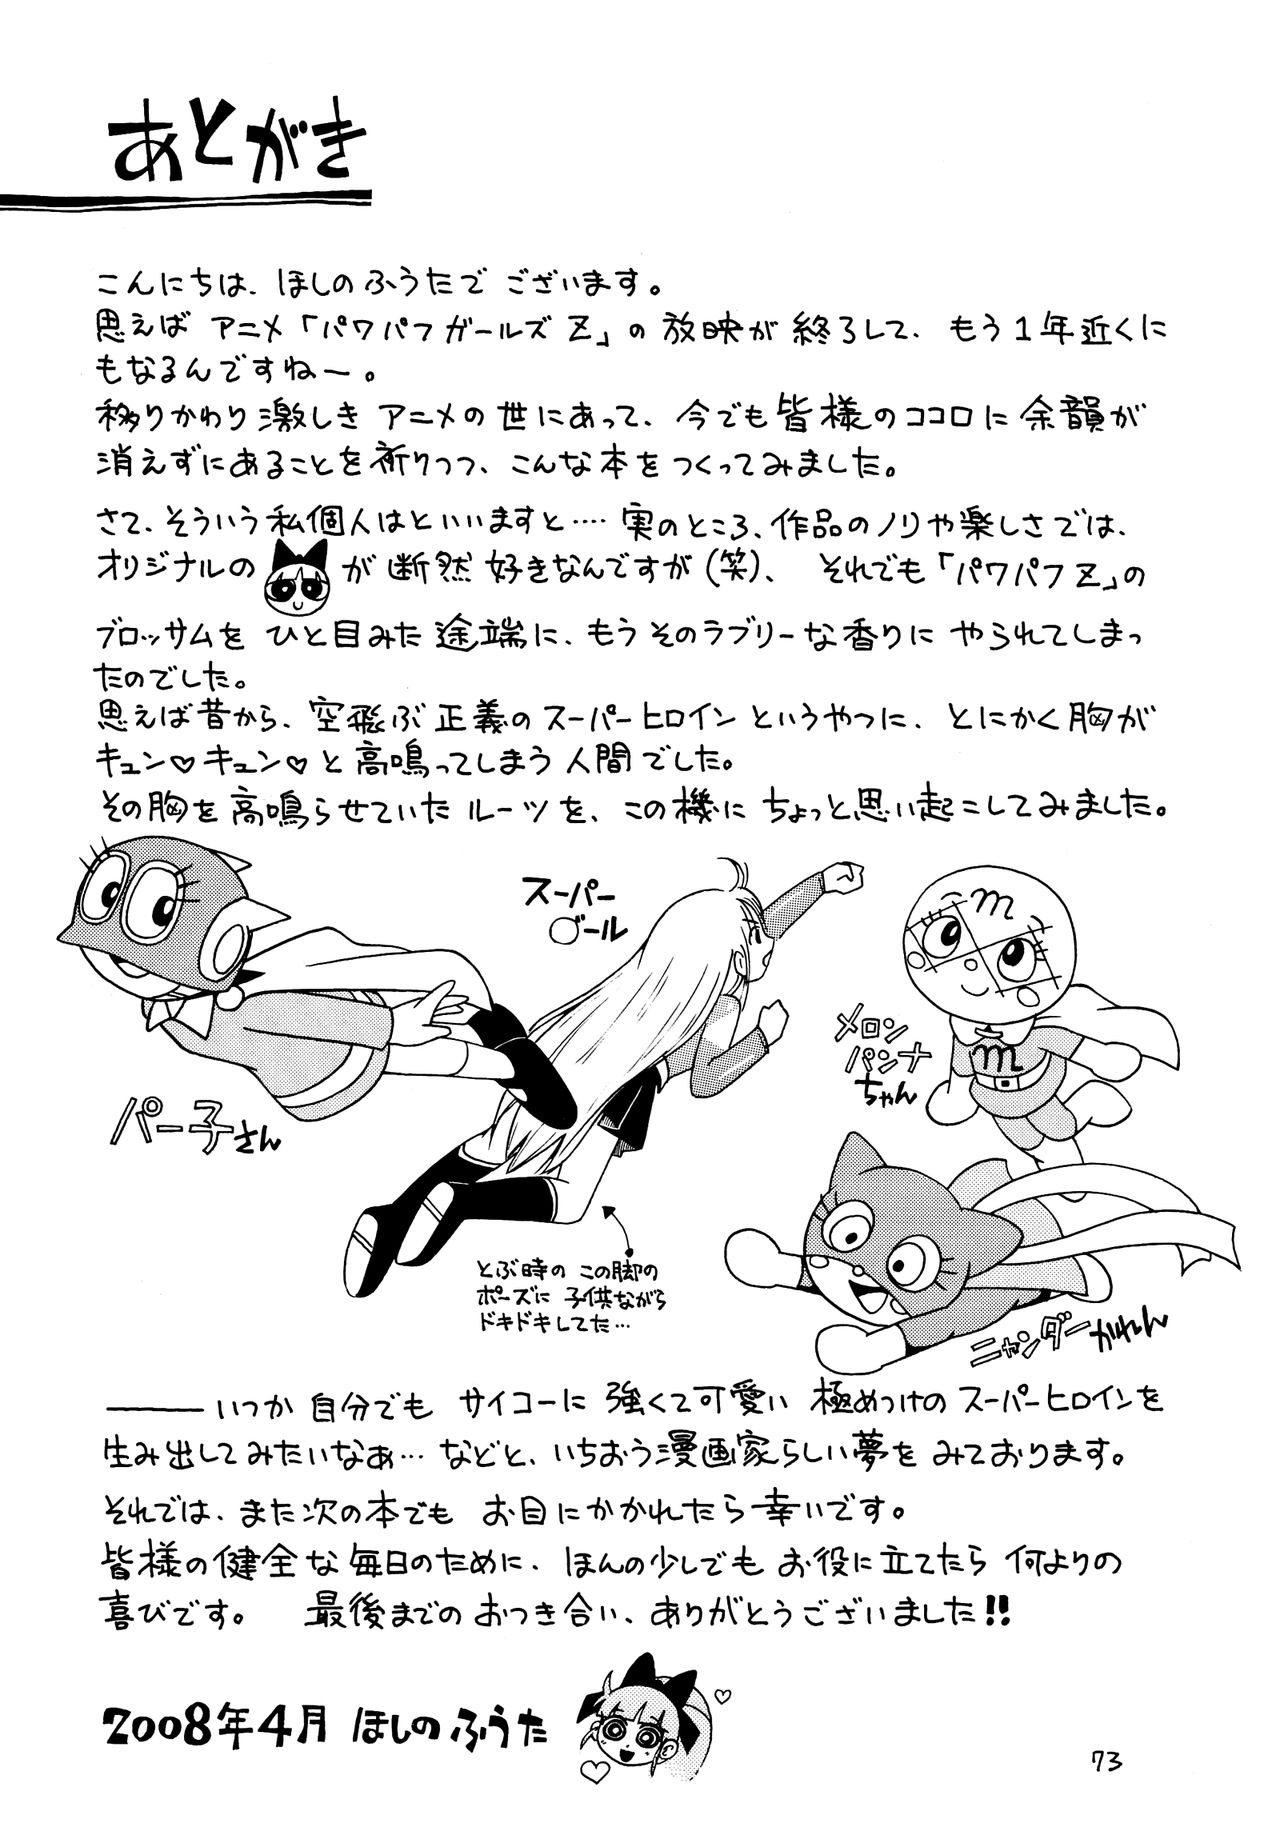 あとがき
こんにちは、ほしのふうたでございます。
思えばアニメ「パワパフガールズZ」の放映が終了して、もう1年近くに
もなるんですねー。
移りかわり激しきアニメの世にあって、今でも皆様のココロに余韻が
消えずにあることを祈りつつ、こんな本をつくってみました。
さて、そういう私個人はといいますと‥‥実のところ、作品のノリや楽しさでは、
オリジナルの が断然好きなんですが(笑)、それでも「パワパフZ」の
ブロッサムをひと目みた途端に、もうそのラブリーな香りにやられてしまっ
たのでした。
思えば昔から、空飛ぶ正義のスーパーヒロインというやつに、とにかく胸が
キュン♡キュン♡と高鳴ってしまう人間でした。
その胸を高鳴らせていたルーツを、この機にちょっと思い起こしてみました。
パー子さん
スーパー
○ール
メロン
パンナ
ちゃん
ニャンダーかれん
とぶ時のこの脚の
ポーズに子供ながら
ドキドキしてた…
――いつか自分でもサイコーに強くて可愛い極めつけのスーパーヒロインを
生み出してみたいなぁ…などと、いちおう漫画家らしい夢をみております。
それでは、また次の本でもお目にかかれたら幸いです。
皆様の健全な毎日のために、ほんの少しでもお役に立てたら何よりの
喜びです。 最後までのおつき合い、ありがとうございました!!
2008年4月 ほしのふうた
73
m
m